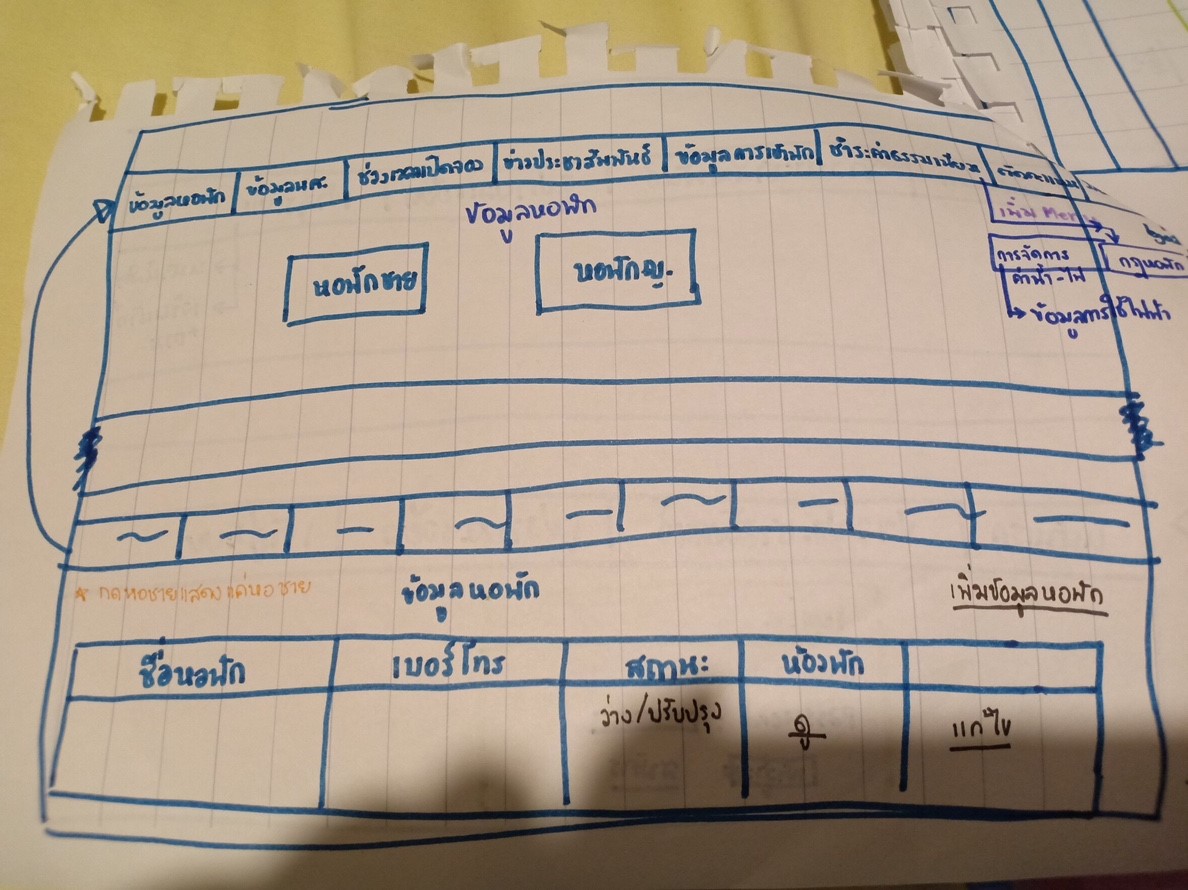 ข้อมูลหอพัก
ข้อมูลนศ.
ช่วงเวลาเปิดจอง
ข่าวประชาสัมพันธ์
ข้อมูลการเข้าพัก
ชำระค่าธรรมเนียม
ข้อมูลหอพัก
เพิ่ม Menu
หอพักชาย
หอพักญ.
การจัดการ
ค่าน้ำ-ไฟ
กฎหอพัก
ข้อมูลการใช้ไฟฟ้า
* กดหอชายแสดงแค่หอชาย
ข้อมูลหอพัก
เพิ่มข้อมูลหอพัก
ชื่อหอพัก
เบอร์โทร
สถานะ
ห้องพัก
ว่าง/ปรับปรุง
ดู
แก้ไข